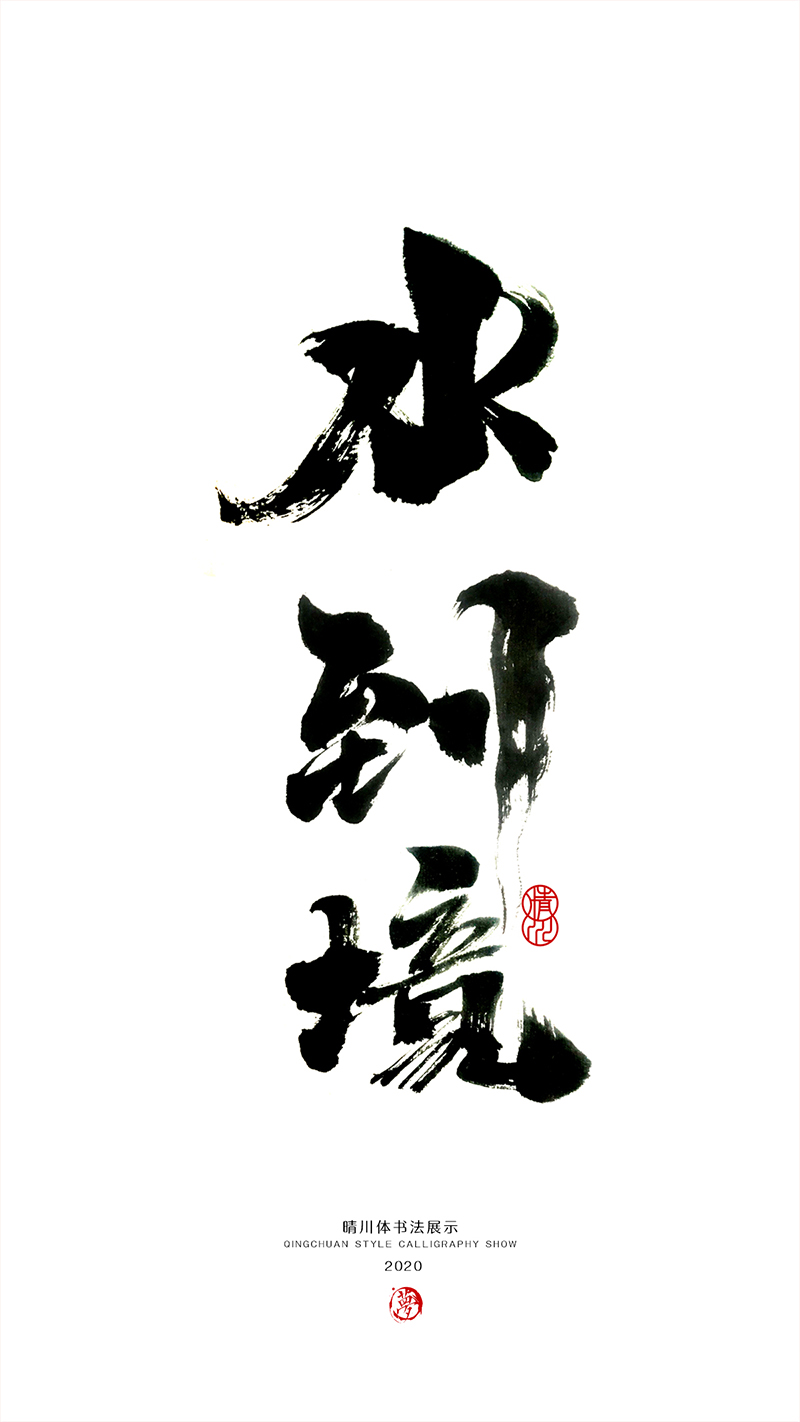 水到境
晴川
晴川体书法展示
QINGCHUAN STYLE CALLIGRAPHY SHOW
2020
夢